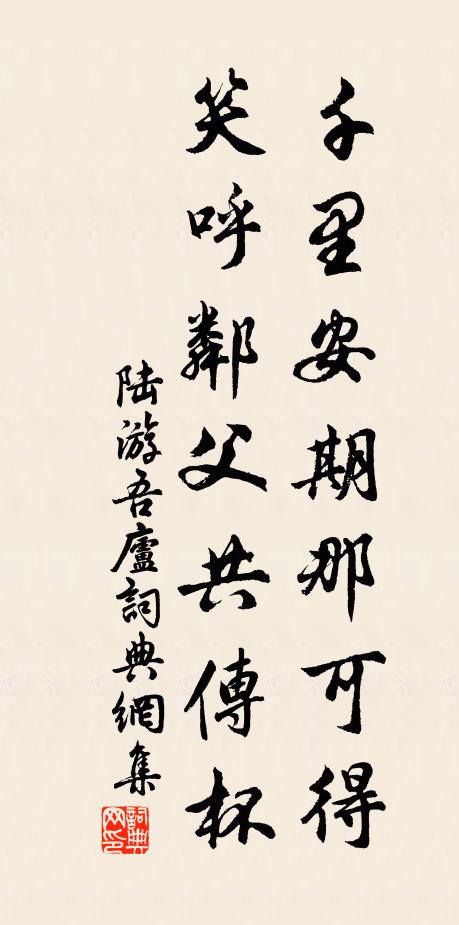 千里安期那可得
笑呼鄰父共傳杯
陆游吾廬詞典網集
詞典網印